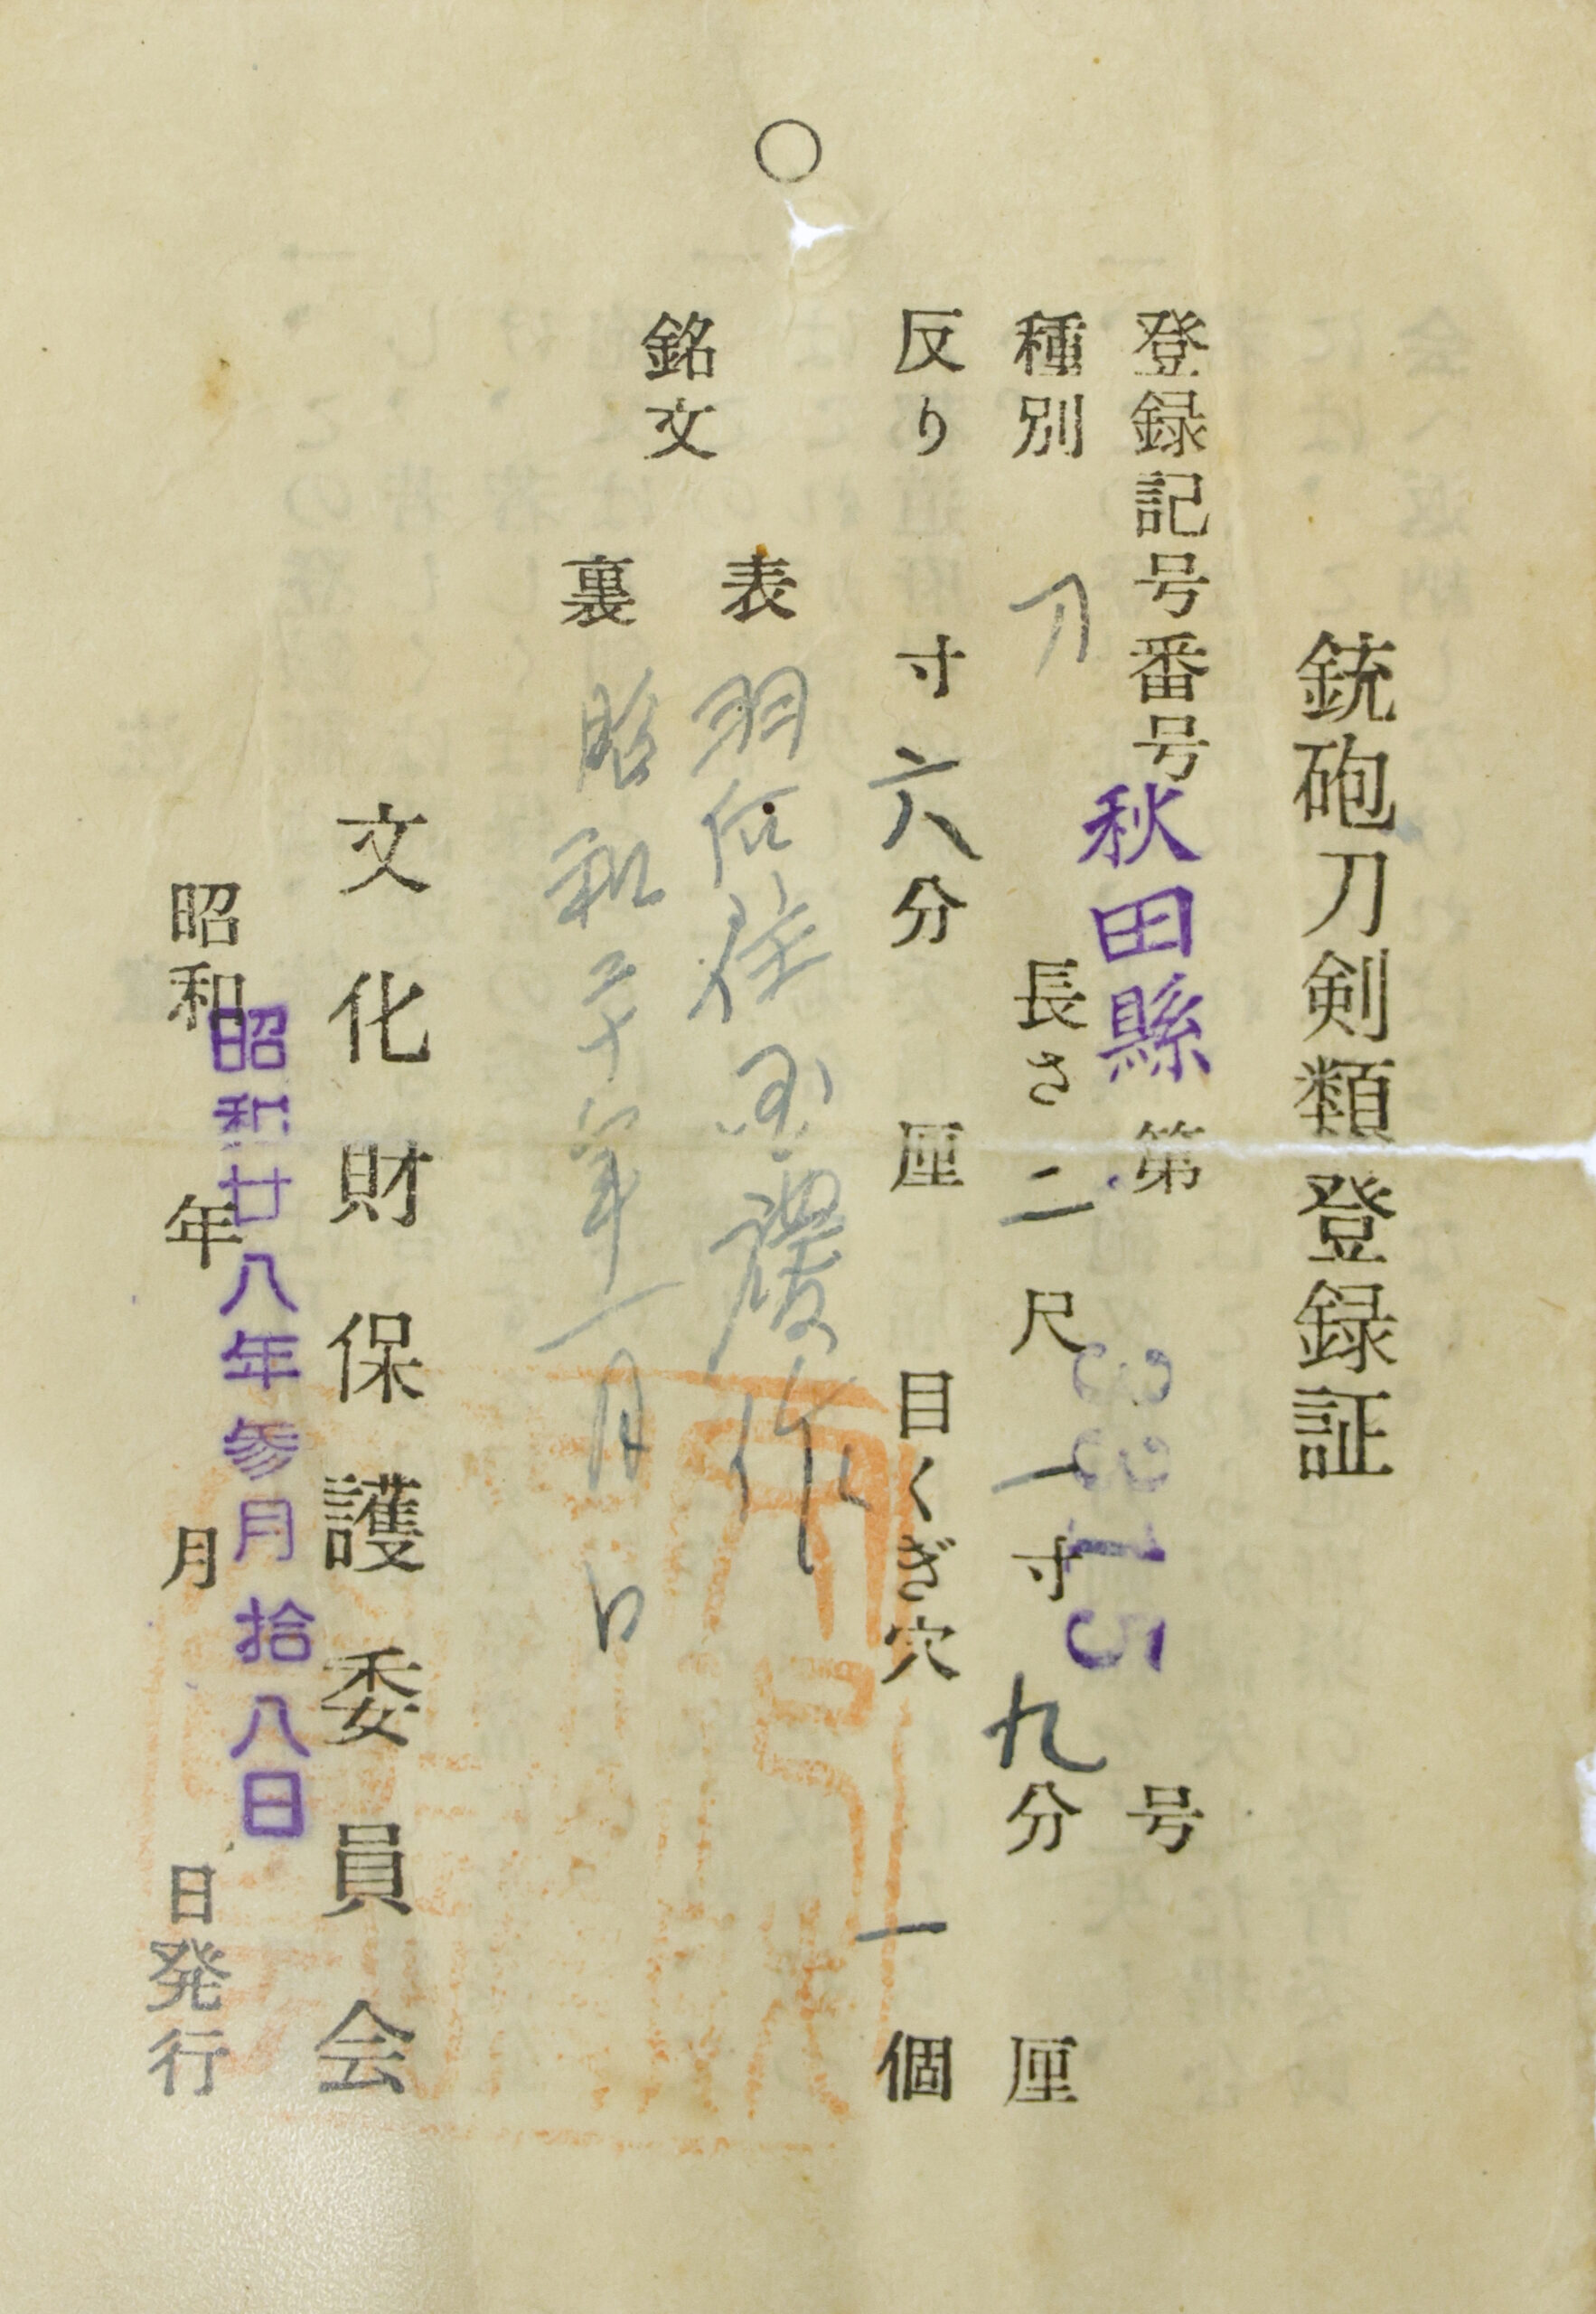 銃砲刀剣類登録証
登録記号番号 秋田縣 第 3315 号
種別 刀 長さ 二尺一寸九分 厘
反り 寸六分 厘 目くぎ穴 一個
銘文
表 羽后住 作
裏 昭和二十 年一月 日
文化財保護委員会
昭和 年 月 日発行
昭和廿八年参月拾八日